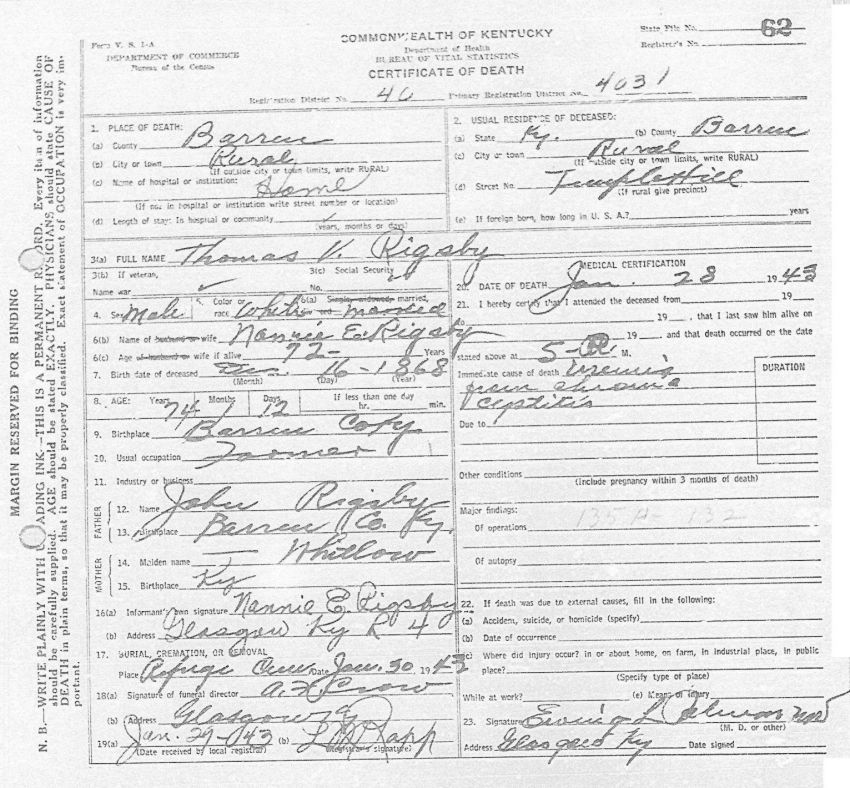 Form V. S. 1-A
DEPARTMENT OF COMMERCE
Bureau of the Census
COMMONWEALTH OF KENTUCKY
Department of Health
BUREAU OF VITAL STATISTICS
CERTIFICATE OF DEATH
State File No.
62
Registrar's No.
Registration District No. 40 Primary Registration District No. 4031
MARGIN RESERVED FOR BINDING
N. B.—WRITE PLAINLY WITH UNFADING INK—THIS IS A PERMANENT RECORD. Every item of information
should be carefully supplied. AGE should be stated EXACTLY. PHYSICIANS should state CAUSE OF
DEATH in plain terms, so that it may be properly classified. Exact statement of OCCUPATION is very im-
portant.
1. PLACE OF DEATH:
(a) County Barren
(b) City or town Rural
(If outside city or town limits, write RURAL)
(c) Name of hospital or institution:
Home
(If not in hospital or institution write street number or location)
(d) Length of stay: In hospital or community
(years, months or days)
2. USUAL RESIDENCE OF DECEASED:
(a) State Ky. (b) County Barren
(c) City or town Rural
(If outside city or town limits, write RURAL)
(d) Street No. Temple Hill
(If rural give precinct)
(e) If foreign born, how long in U. S. A.? years
3(a) FULL NAME Thomas V. Rigsby
3(b) If veteran, 3(c) Social Security
Name war No.
4. Sex Male 5. Color or race White 6(a) Single, widowed, married, Married
6(b) Name of husband or wife Nannie E. Rigsby
6(c) Age of husband or wife if alive 72 Years
7. Birth date of deceased 16 - 1868
(Month) (Day) (Year)
8. AGE: Years Months Days If less than one day
74 1 12 hr. min.
9. Birthplace Barren Co Ky
10. Usual occupation Farmer
11. Industry or business
FATHER
12. Name John Rigsby
13. Birthplace Barren Co. Ky.
MOTHER
14. Maiden name Whitlow
15. Birthplace Ky
16(a) Informant's own signature Nannie E Rigsby
(b) Address Glasgow Ky R 4
17. BURIAL, CREMATION, OR REMOVAL
Place Refuge Date Jan. 30, 1943
18(a) Signature of funeral director A. F. Crow
(b) Address Glasgow
19(a) Jan. 29-43 (b) Rapp
(Date received by local registrar) (Registrar's signature)
MEDICAL CERTIFICATION
20. DATE OF DEATH Jan. 28 1943
21. I hereby certify that I attended the deceased from 19
to 19 , that I last saw him alive on
19 , and that death occurred on the date
stated above at 5-P. M.
Immediate cause of death Uremia
from chronic
cystitis
DURATION
Due to
Other conditions
(Include pregnancy within 3 months of death)
Major findings:
Of operations
Of autopsy
22. If death was due to external causes, fill in the following:
(a) Accident, suicide, or homicide (specify)
(b) Date of occurrence
(c) Where did injury occur? in or about home, on farm, in industrial place, in public
place?
(Specify type of place)
While at work? (e) Means of injury
23. Signature Ewing L.
(M. D. or other)
Address Glasgow Ky Date signed